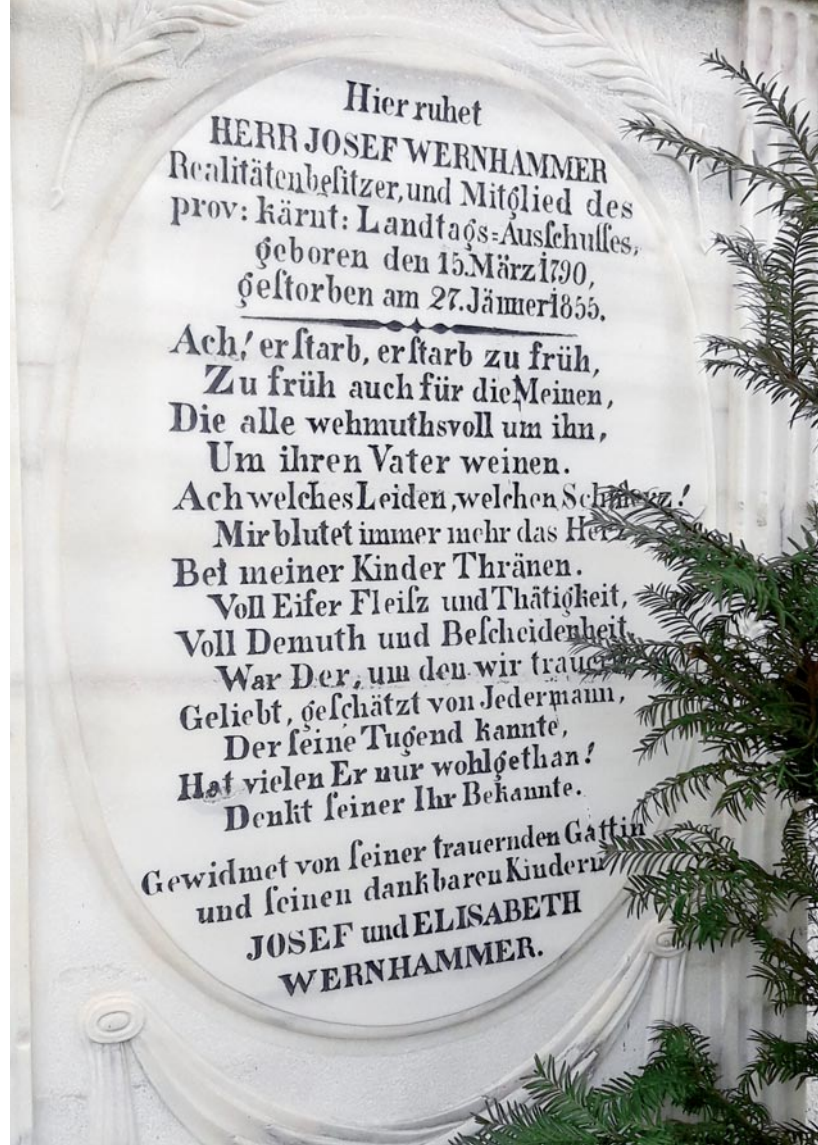 Hier ruhet
HERR JOSEF WERNHAMMER
Realitätenbeſitzer, und Mitglied des
prov: kärnt: Landtags=Ausſchuſſes,
geboren den 15. März 1790,
geſtorben am 27. Jänner 1855.
Ach! er ſtarb, er ſtarb zu früh,
Zu früh auch für die Meinen,
Die alle wehmuthsvoll um ihn,
Um ihren Vater weinen.
Ach welches Leiden, welchen Schmerz!
Mir blutet immer mehr das Herz
Bei meiner Kinder Thränen.
Voll Eifer Fleiſz und Thätigkeit,
Voll Demuth und Beſcheidenheit,
War Der, um den wir trauern
Geliebt, geſchätzt von Jedermann,
Der ſeine Tugend kannte,
Hat vielen Er nur wohlgethan!
Denkt ſeiner Ihr Bekannte.
Gewidmet von ſeiner trauernden Gattin
und ſeinen dankbaren Kindern
JOSEF und ELISABETH
WERNHAMMER.